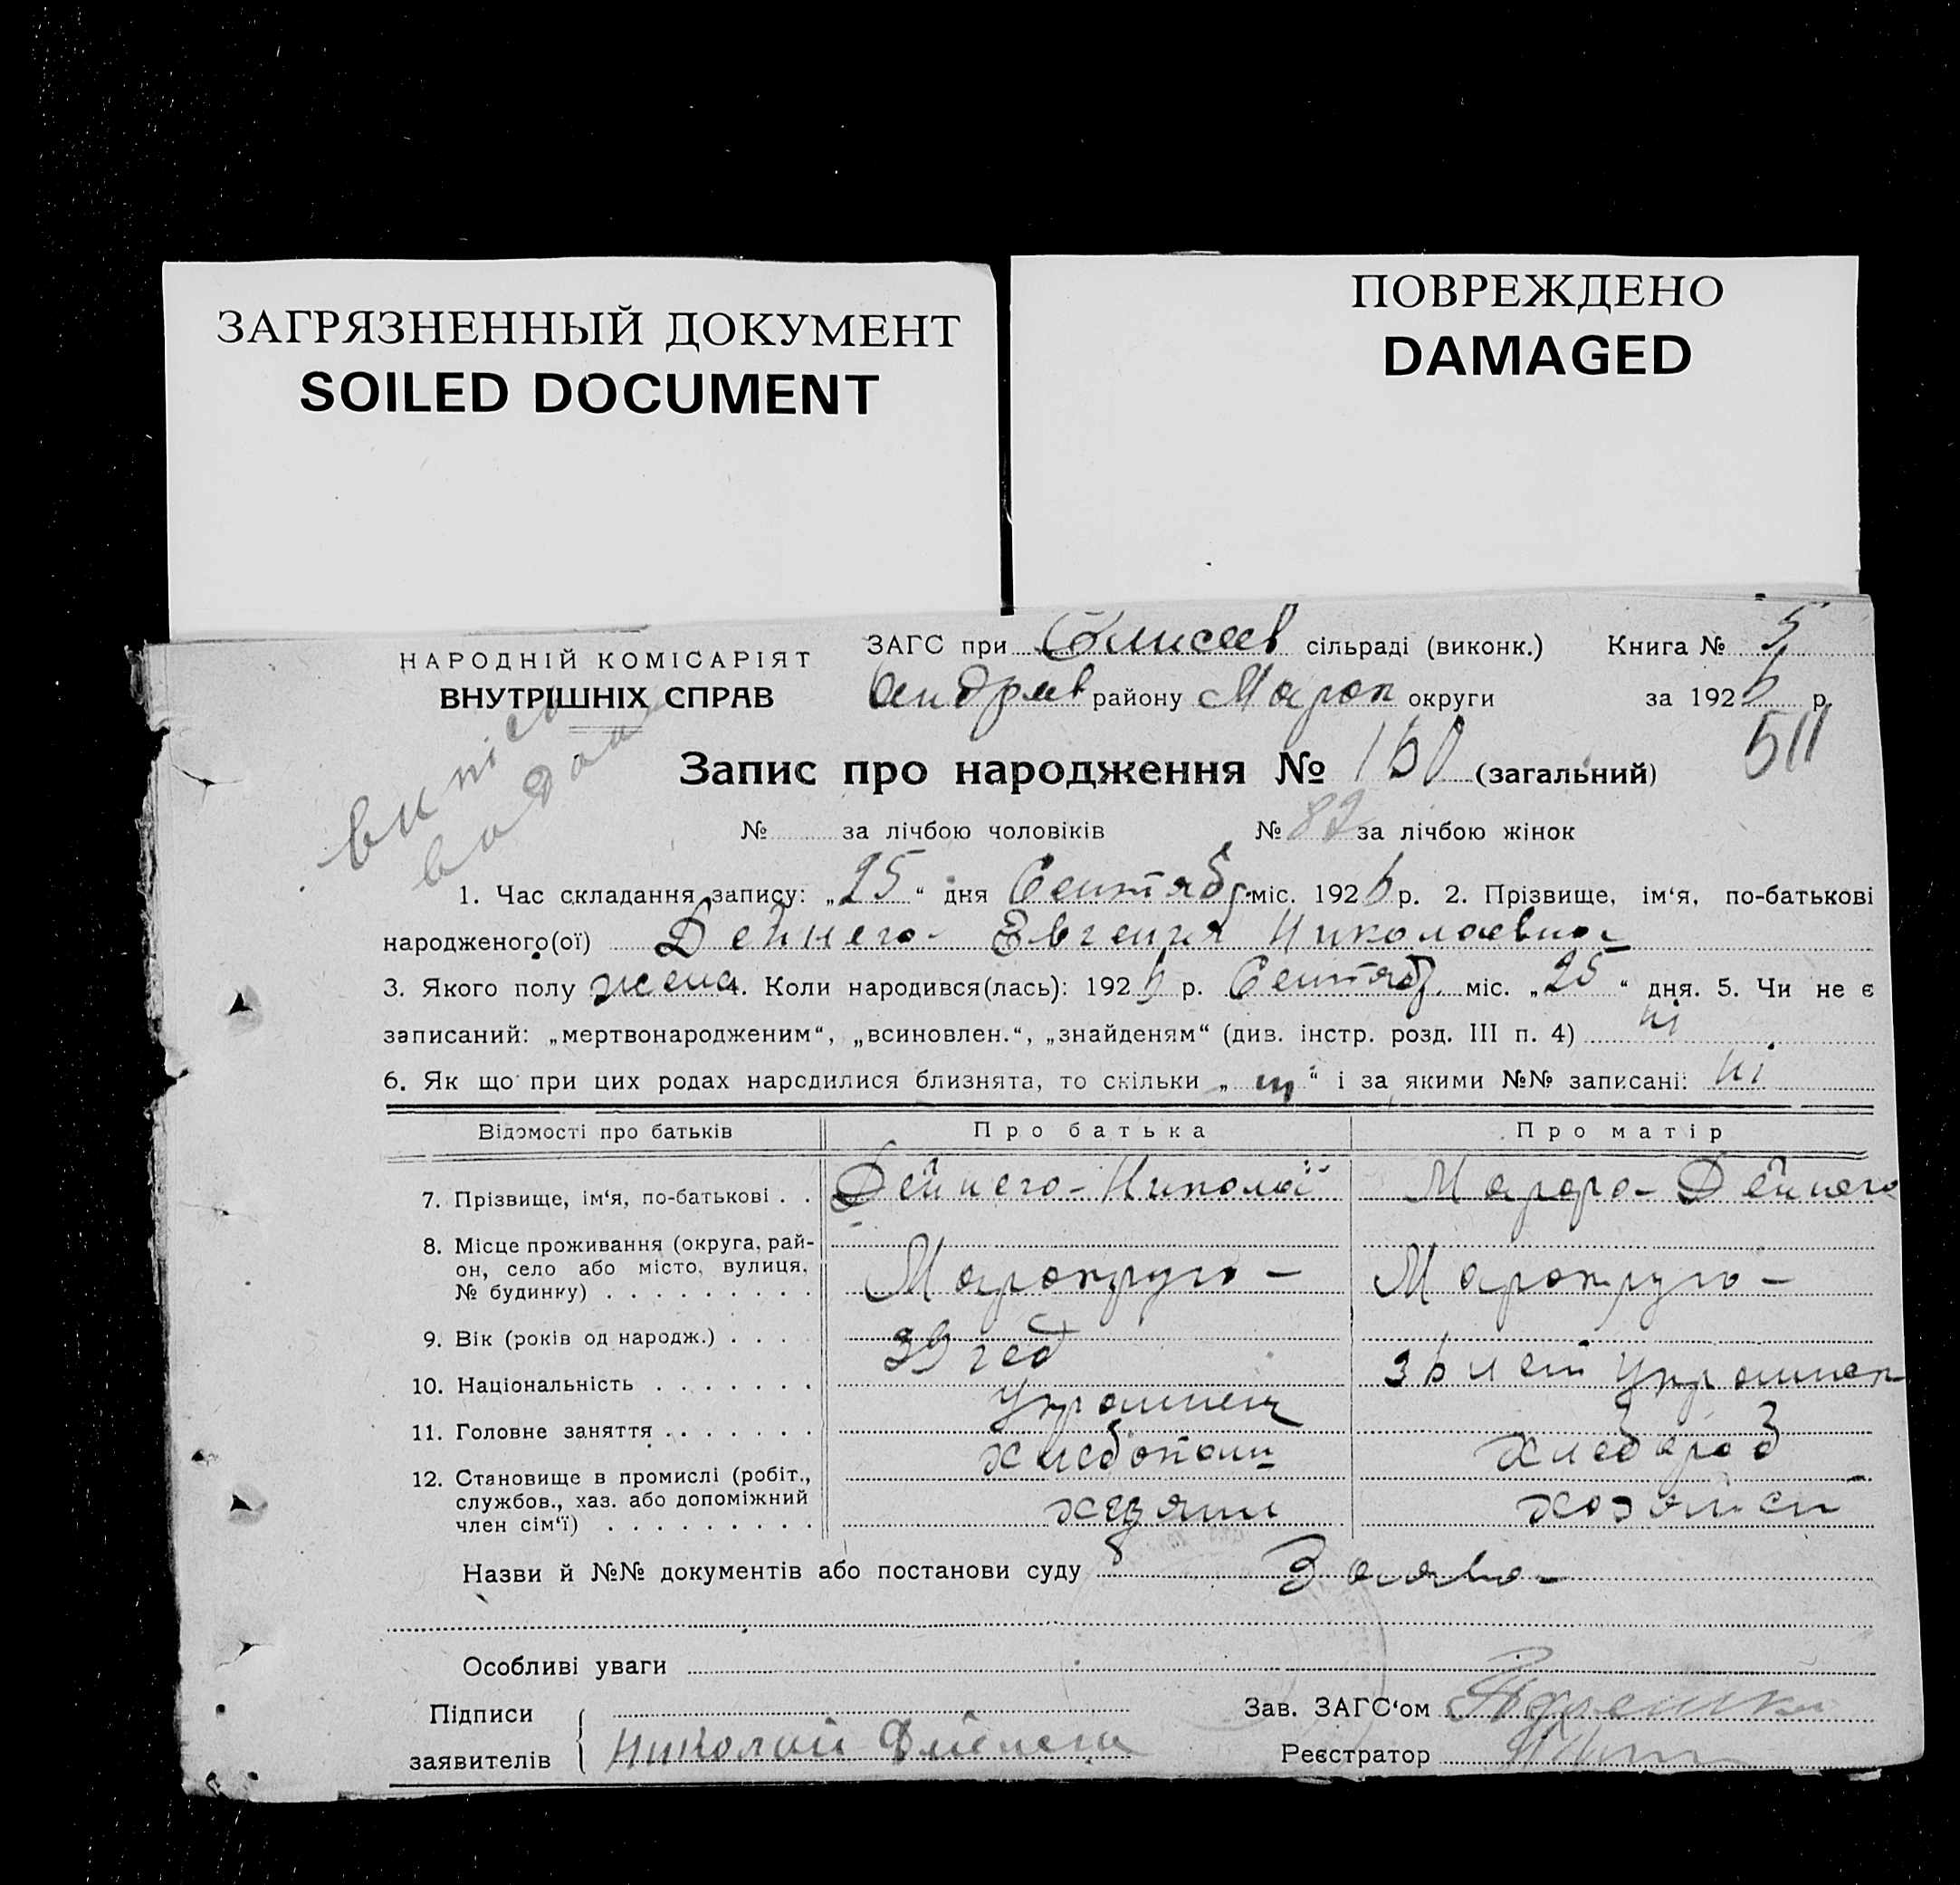 ЗАГРЯЗНЕННЫЙ ДОКУМЕНТ
SOILED DOCUMENT
ПОВРЕЖДЕНО
DAMAGED
НАРОДНІЙ КОМІСАРІЯТ
ВНУТРІШНІХ СПРАВ
ЗАГС при Елисеев сільраді (виконк.) Книга № 5
Андреев району Мариоп округи за 1926 р.
511
Запис про народження № 160 (загальний)
№ за лічбою чоловіків № 82 за лічбою жінок
випісь
видан
1. Час складання запису: „25“ дня Сентябр міс. 1926 р. 2. Прізвище, ім‘я, по-батькові
народженого(ої) Дейнега Евгения Николаевна
3. Якого полу жена 4. Коли народився(лась): 1926 р. Сентябр. міс. „25“ дня. 5. Чи не є
записаний: „мертвонародженим“, „всиновлен.“, „знайденям“ (див. інстр. розд. III п. 4) ні
6. Як що при цих родах народилися близнята, то скільки „ні“ і за якими №№ записані: ні
Відомості про батьків Про батька Про матір
7. Прізвище, ім‘я, по-батькові . . Дейнега Николай Марфа Дейнега
8. Місце проживання (округа, рай-
он, село або місто, вулиця,
№ будинку) . . . . . . . . .
9. Вік (років од народж.) . . . 39 год 36 лет
10. Національність . . . . . . . Украинец Украинск
11. Головне заняття . . . . . . . хлебопаш хлебороб
12. Становище в промислі (робіт.,
службов., хаз. або допоміжний
член сім‘ї) . . . . . . . . . хозяин
Назви й №№ документів або постанови суду Заява
Особливі уваги
Підписи
заявителів Николай Дейнега
Зав. ЗАГС‘ом
Реєстратор